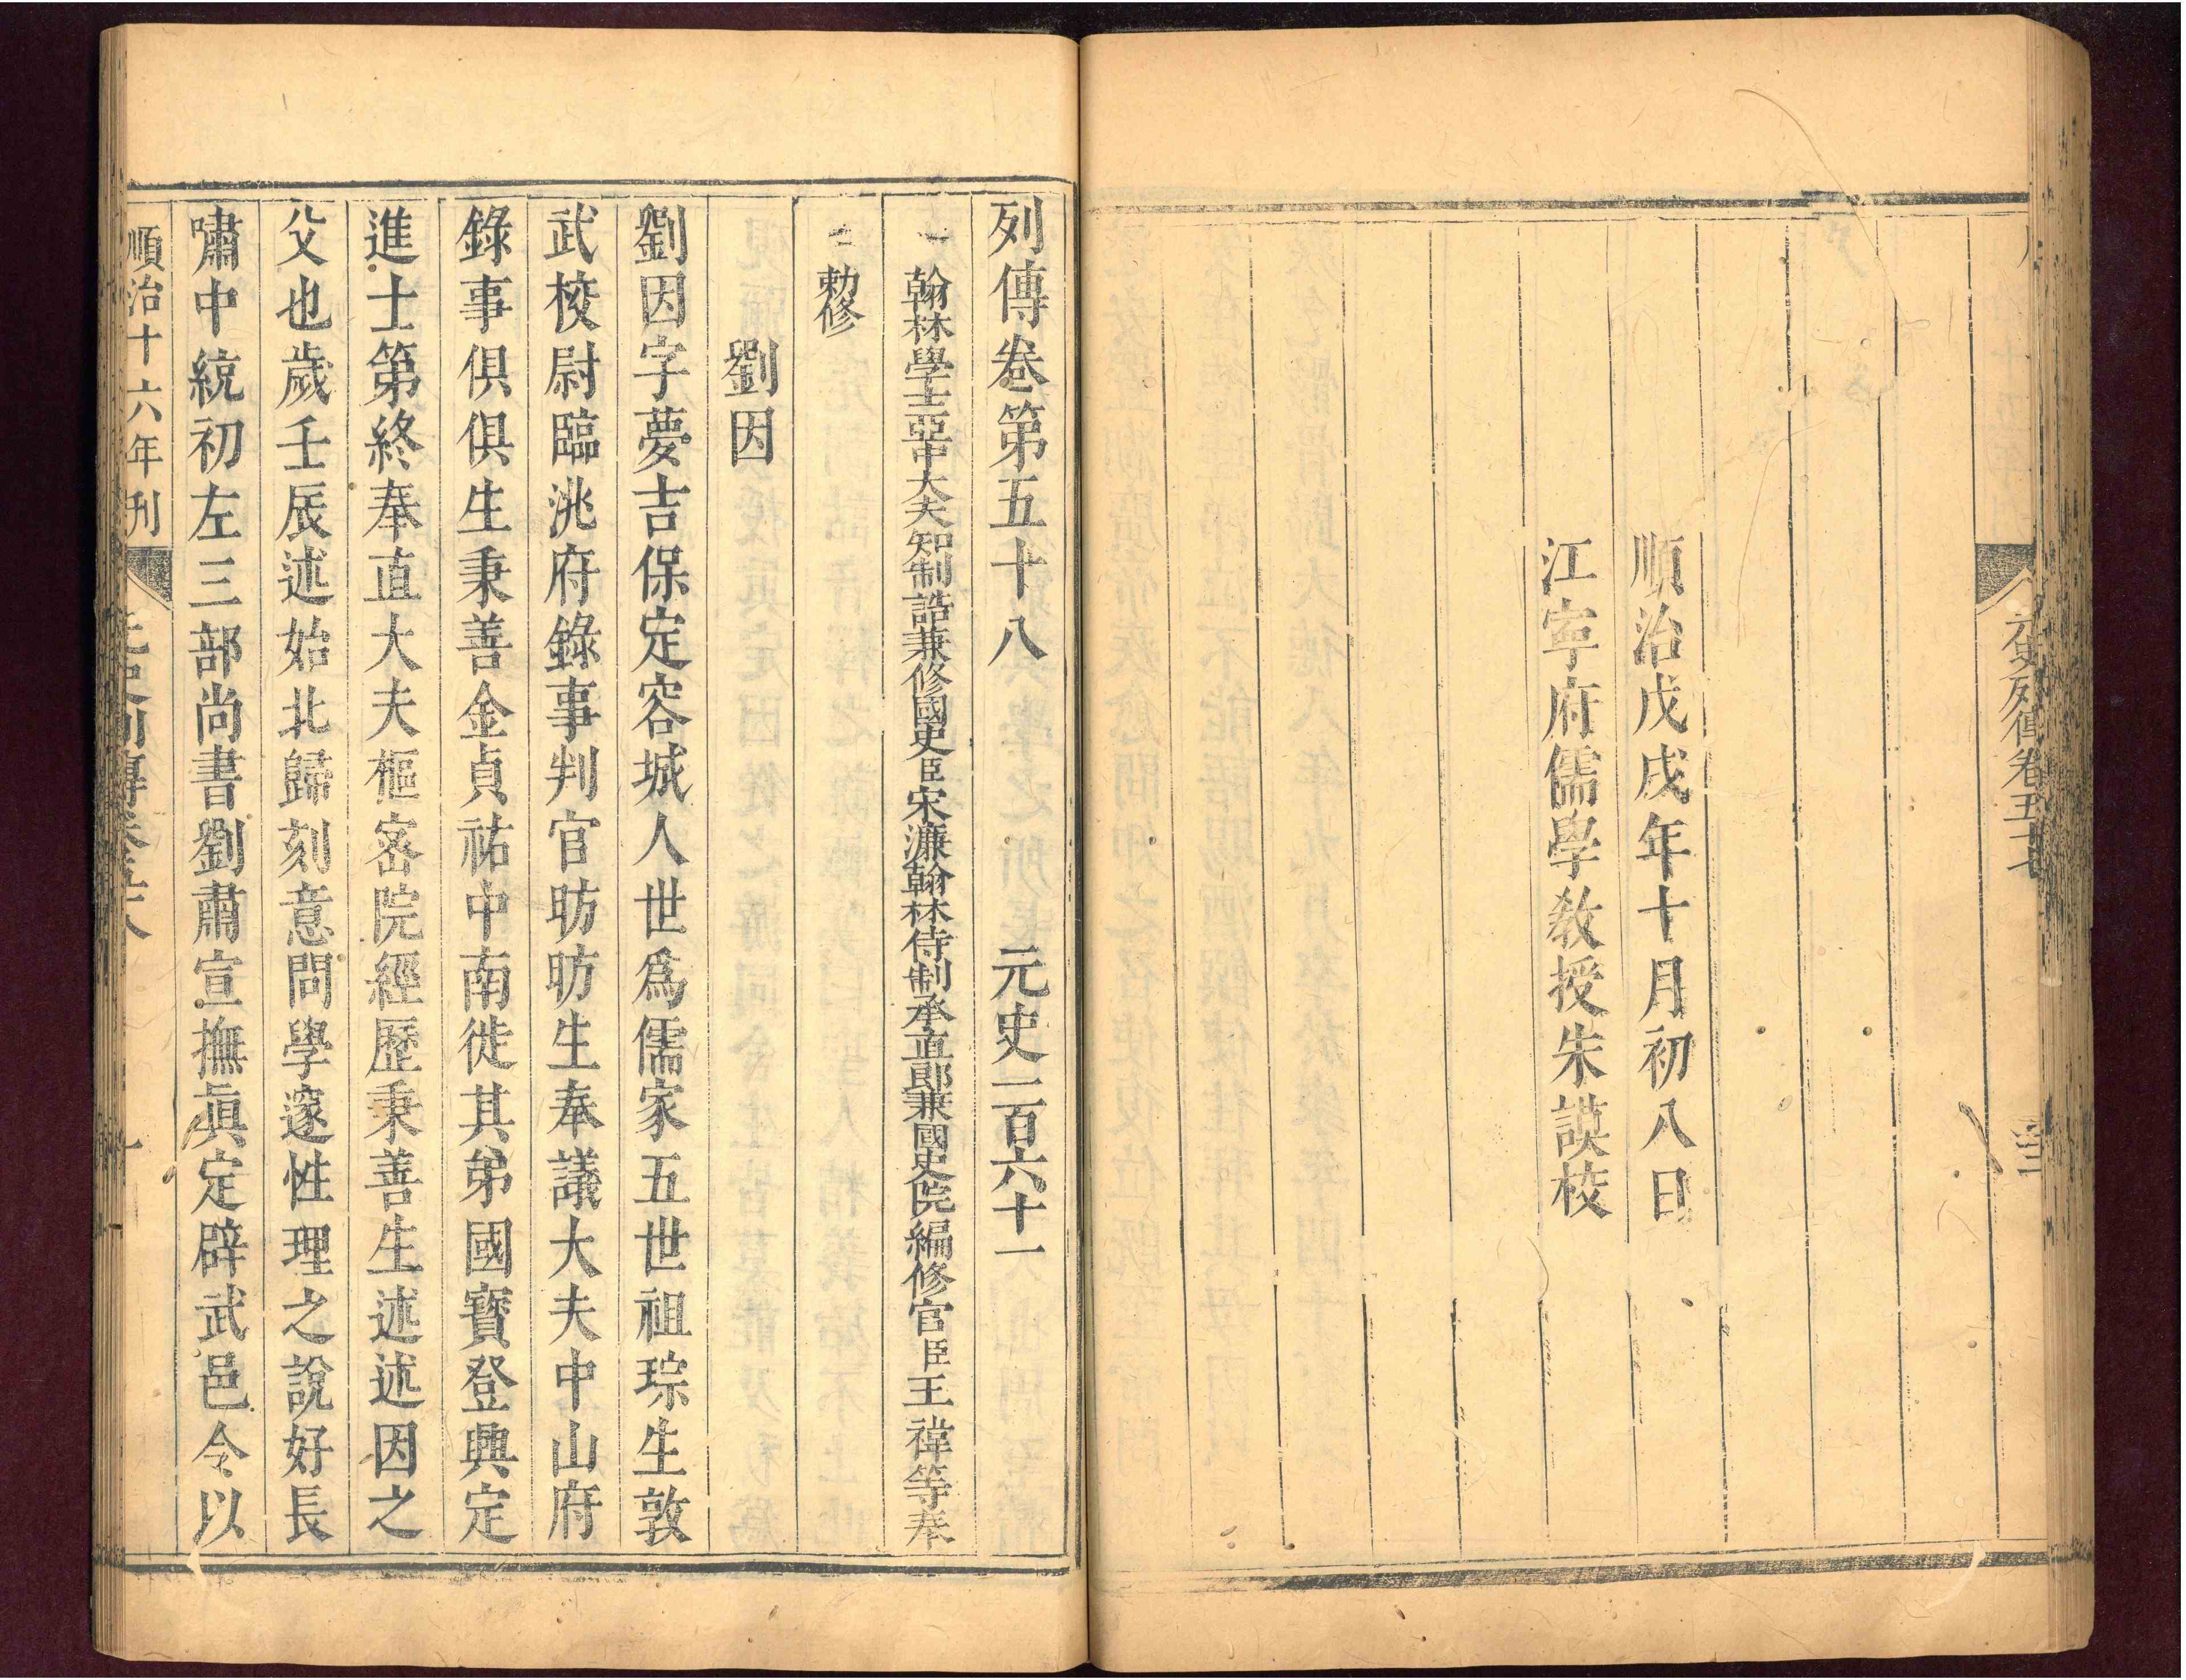 元史列傳卷五十七
順治戊戌年十月初八日
江寧府儒學教授朱謨校
列傳卷第五十八　元史一百六十一
翰林學士亞中大夫知制誥兼修國史臣宋濂翰林侍制承直郎兼國史院編修官臣王禕等奉
勅修
劉因
劉因字夢吉保定容城人世爲儒家五世祖琮生敦
武校尉臨洮府錄事判官昉昉生奉議大夫中山府
錄事俱俱生秉善金貞祐中南徙其弟國寶登興定
進士第終奉直大夫樞密院經歷秉善生述述因之
父也歲壬辰述始北歸刻意問學邃性理之說好長
嘯中統初左三部尚書劉肅宣撫眞定辟武邑令以
順治十六年刊